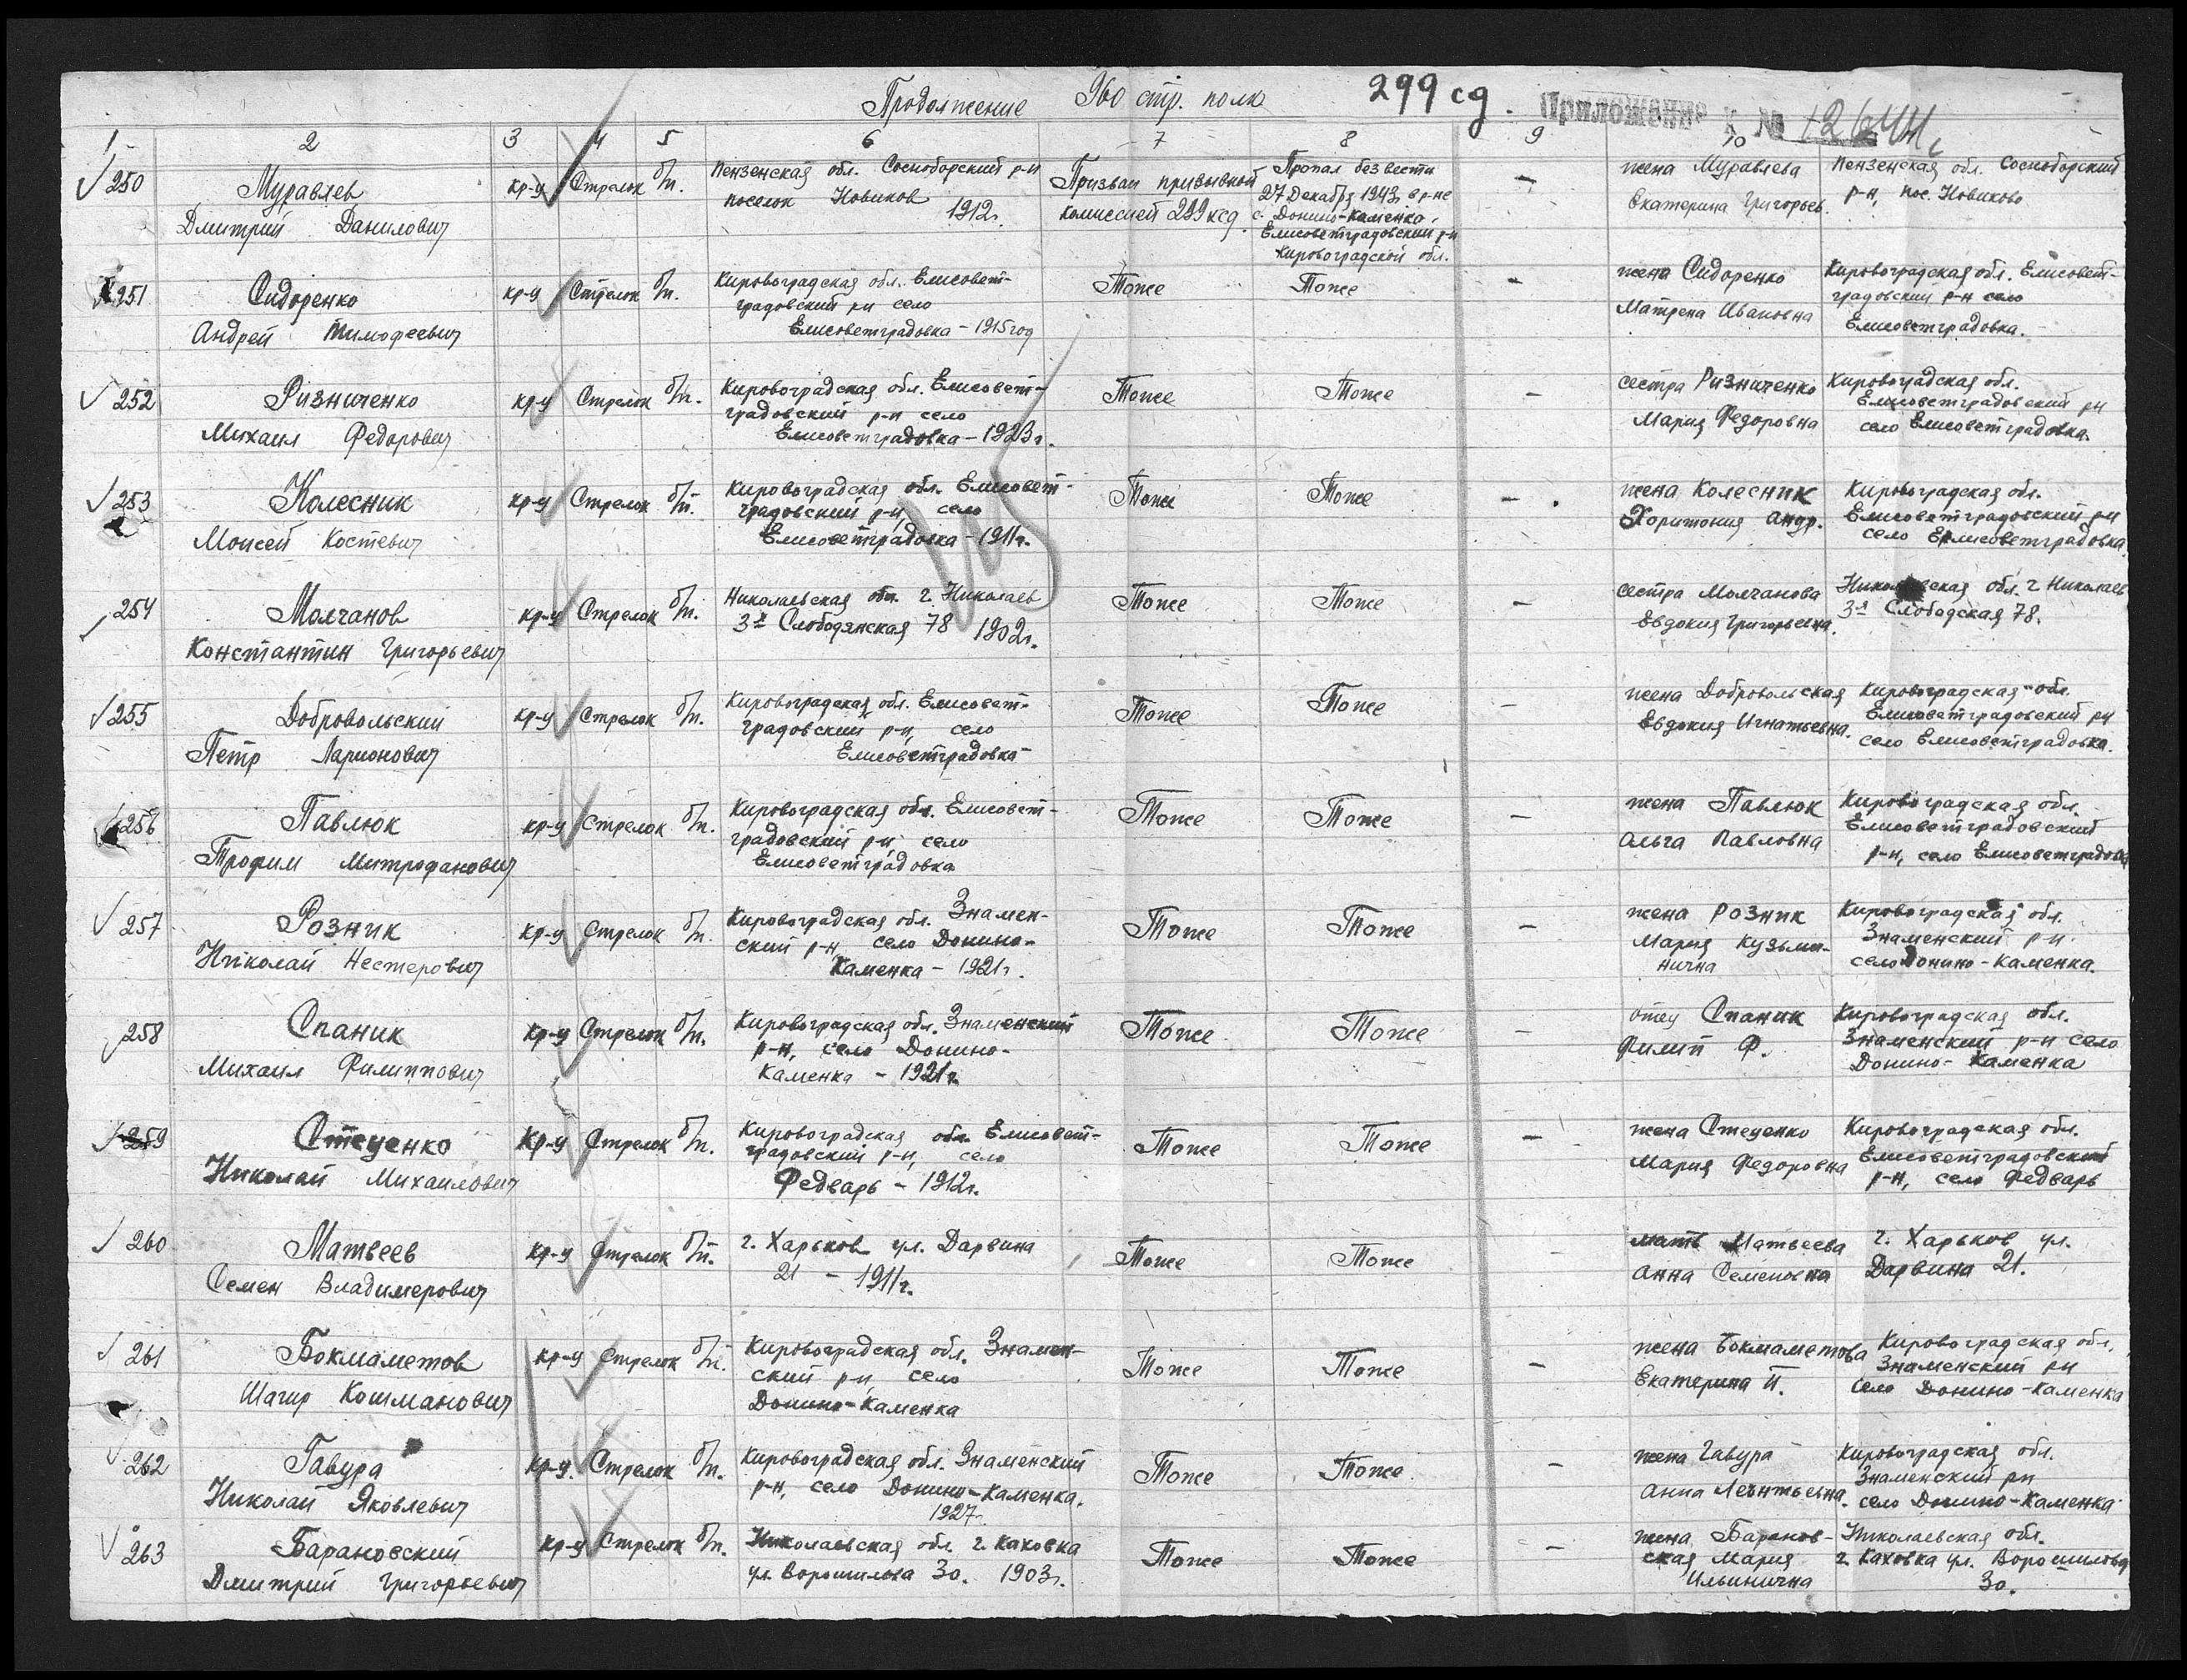 Продолжение 960 стр. полк 299 сд.
Приложение к №
1 2 3 4 5 6 7 8 9 10
250 Муравлев Дмитрий Данилович кр-ц Стрелок б/п. Пензенская обл. Сосноборский р-н поселок Новиков 1912г. Призван призывной комиссией 299 ксд. Пропал без вести 27 Декабря 1943г. в р-не с. Донино-Каменка, Елисоветградовский р-н Кировоградской обл. – жена Муравлева Екатерина Григорьев. Пензенская обл. Сосноборский р-н, пос. Новиково
251 Сидоренко Андрей Тимофеевич кр-ц Стрелок б/п. Кировоградская обл. Елисовет-градовский р-н село Елисоветградовка – 1915 год Тоже Тоже – жена Сидоренко Матрена Ивановна Кировоградская обл. Елисовет-градовский р-н село Елисоветградовка.
252 Ризниченко Михаил Федорович кр-ц Стрелок б/п. Кировоградская обл. Елисовет-градовский р-н село Елисоветградовка – 1923г. Тоже Тоже – сестра Ризниченко Мария Федоровна Кировоградская обл. Елисоветградовский р-н село Елисоветградовка.
253 Колесник Моисей Костевич кр-ц Стрелок б/п. Кировоградская обл. Елисовет-градовский р-н, село Елисоветградовка – 1911г. Тоже Тоже – жена Колесник Харитония Андр. Кировоградская обл. Елисоветградовский р-н село Елисоветградовка.
254 Молчанов Константин Григорьевич кр-ц Стрелок б/п. Николаевская обл. г. Николаев 3я Слободянская 78 1902г. Тоже Тоже – сестра Молчанова Евдокия Григорьевна. Николаевская обл. г Николаев 3я Слободская 78.
255 Добровольский Петр Ларионович кр-ц Стрелок б/п. Кировоградская обл. Елисовет-градовский р-н, село Елисоветградовка Тоже Тоже – жена Добровольская Евдокия Игнатьевна. Кировоградская обл. Елисоветградовский р-н село Елисоветградовка.
256 Павлюк Трофим Митрофанович кр-ц Стрелок б/п. Кировоградская обл. Елисовет-градовский р-н, село Елисоветградовка Тоже Тоже – жена Павлюк Ольга Павловна Кировоградская обл. Елисоветградовский р-н, село Елисоветградовка
257 Розник Николай Нестерович кр-ц Стрелок б/п. Кировоградская обл. Знамен-ский р-н, село Донино-Каменка – 1921г. Тоже Тоже – жена Розник Мария Кузьми-нична Кировоградская обл. Знаменский р-н. село Донино-Каменка.
258 Спаник Михаил Филиппович кр-ц Стрелок б/п. Кировоградская обл. Знаменский р-н, село Донино-Каменка – 1921г. Тоже Тоже – отец Спаник Филип Ф. Кировоградская обл. Знаменский р-н село Донино-Каменка
259 Стеценко Николай Михаилович Кр-ц Стрелок б/п. Кировоградская обл. Елисовет-градовский р-н, село Федварь – 1912г. Тоже Тоже – жена Стеценко Мария Федоровна Кировоградская обл. Елисоветградовский р-н, село Федварь
260 Матвеев Семен Владимерович кр-ц Стрелок б/п. г. Харьков ул. Дарвина 21 – 1911г. Тоже Тоже – мать Матвеева Анна Семеновна г. Харьков ул. Дарвина 21.
261 Бокмаметов Шагир Кошманович кр-ц Стрелок б/п. Кировоградская обл. Знамен-ский р-н, село Донино-Каменка Тоже Тоже – жена Бокмаметова Екатерина П. Кировоградская обл. Знаменский р-н село Донино-Каменка
262 Гавура Николай Яковлевич кр-ц. Стрелок б/п. Кировоградская обл. Знаменский р-н, село Донино-Каменка. 1927г. Тоже Тоже. – жена Гавура Анна Леонтьевна. Кировоградская обл. Знаменский р-н село Донино-Каменка.
263 Барановский Дмитрий Григорьевич кр-ц Стрелок б/п. Николаевская обл. г. Каховка ул. Ворошилова 30. 1903г. Тоже Тоже – жена Баранов-ская Мария Ильинична Николаевская обл. г. Каховка ул. Ворошилова 30.